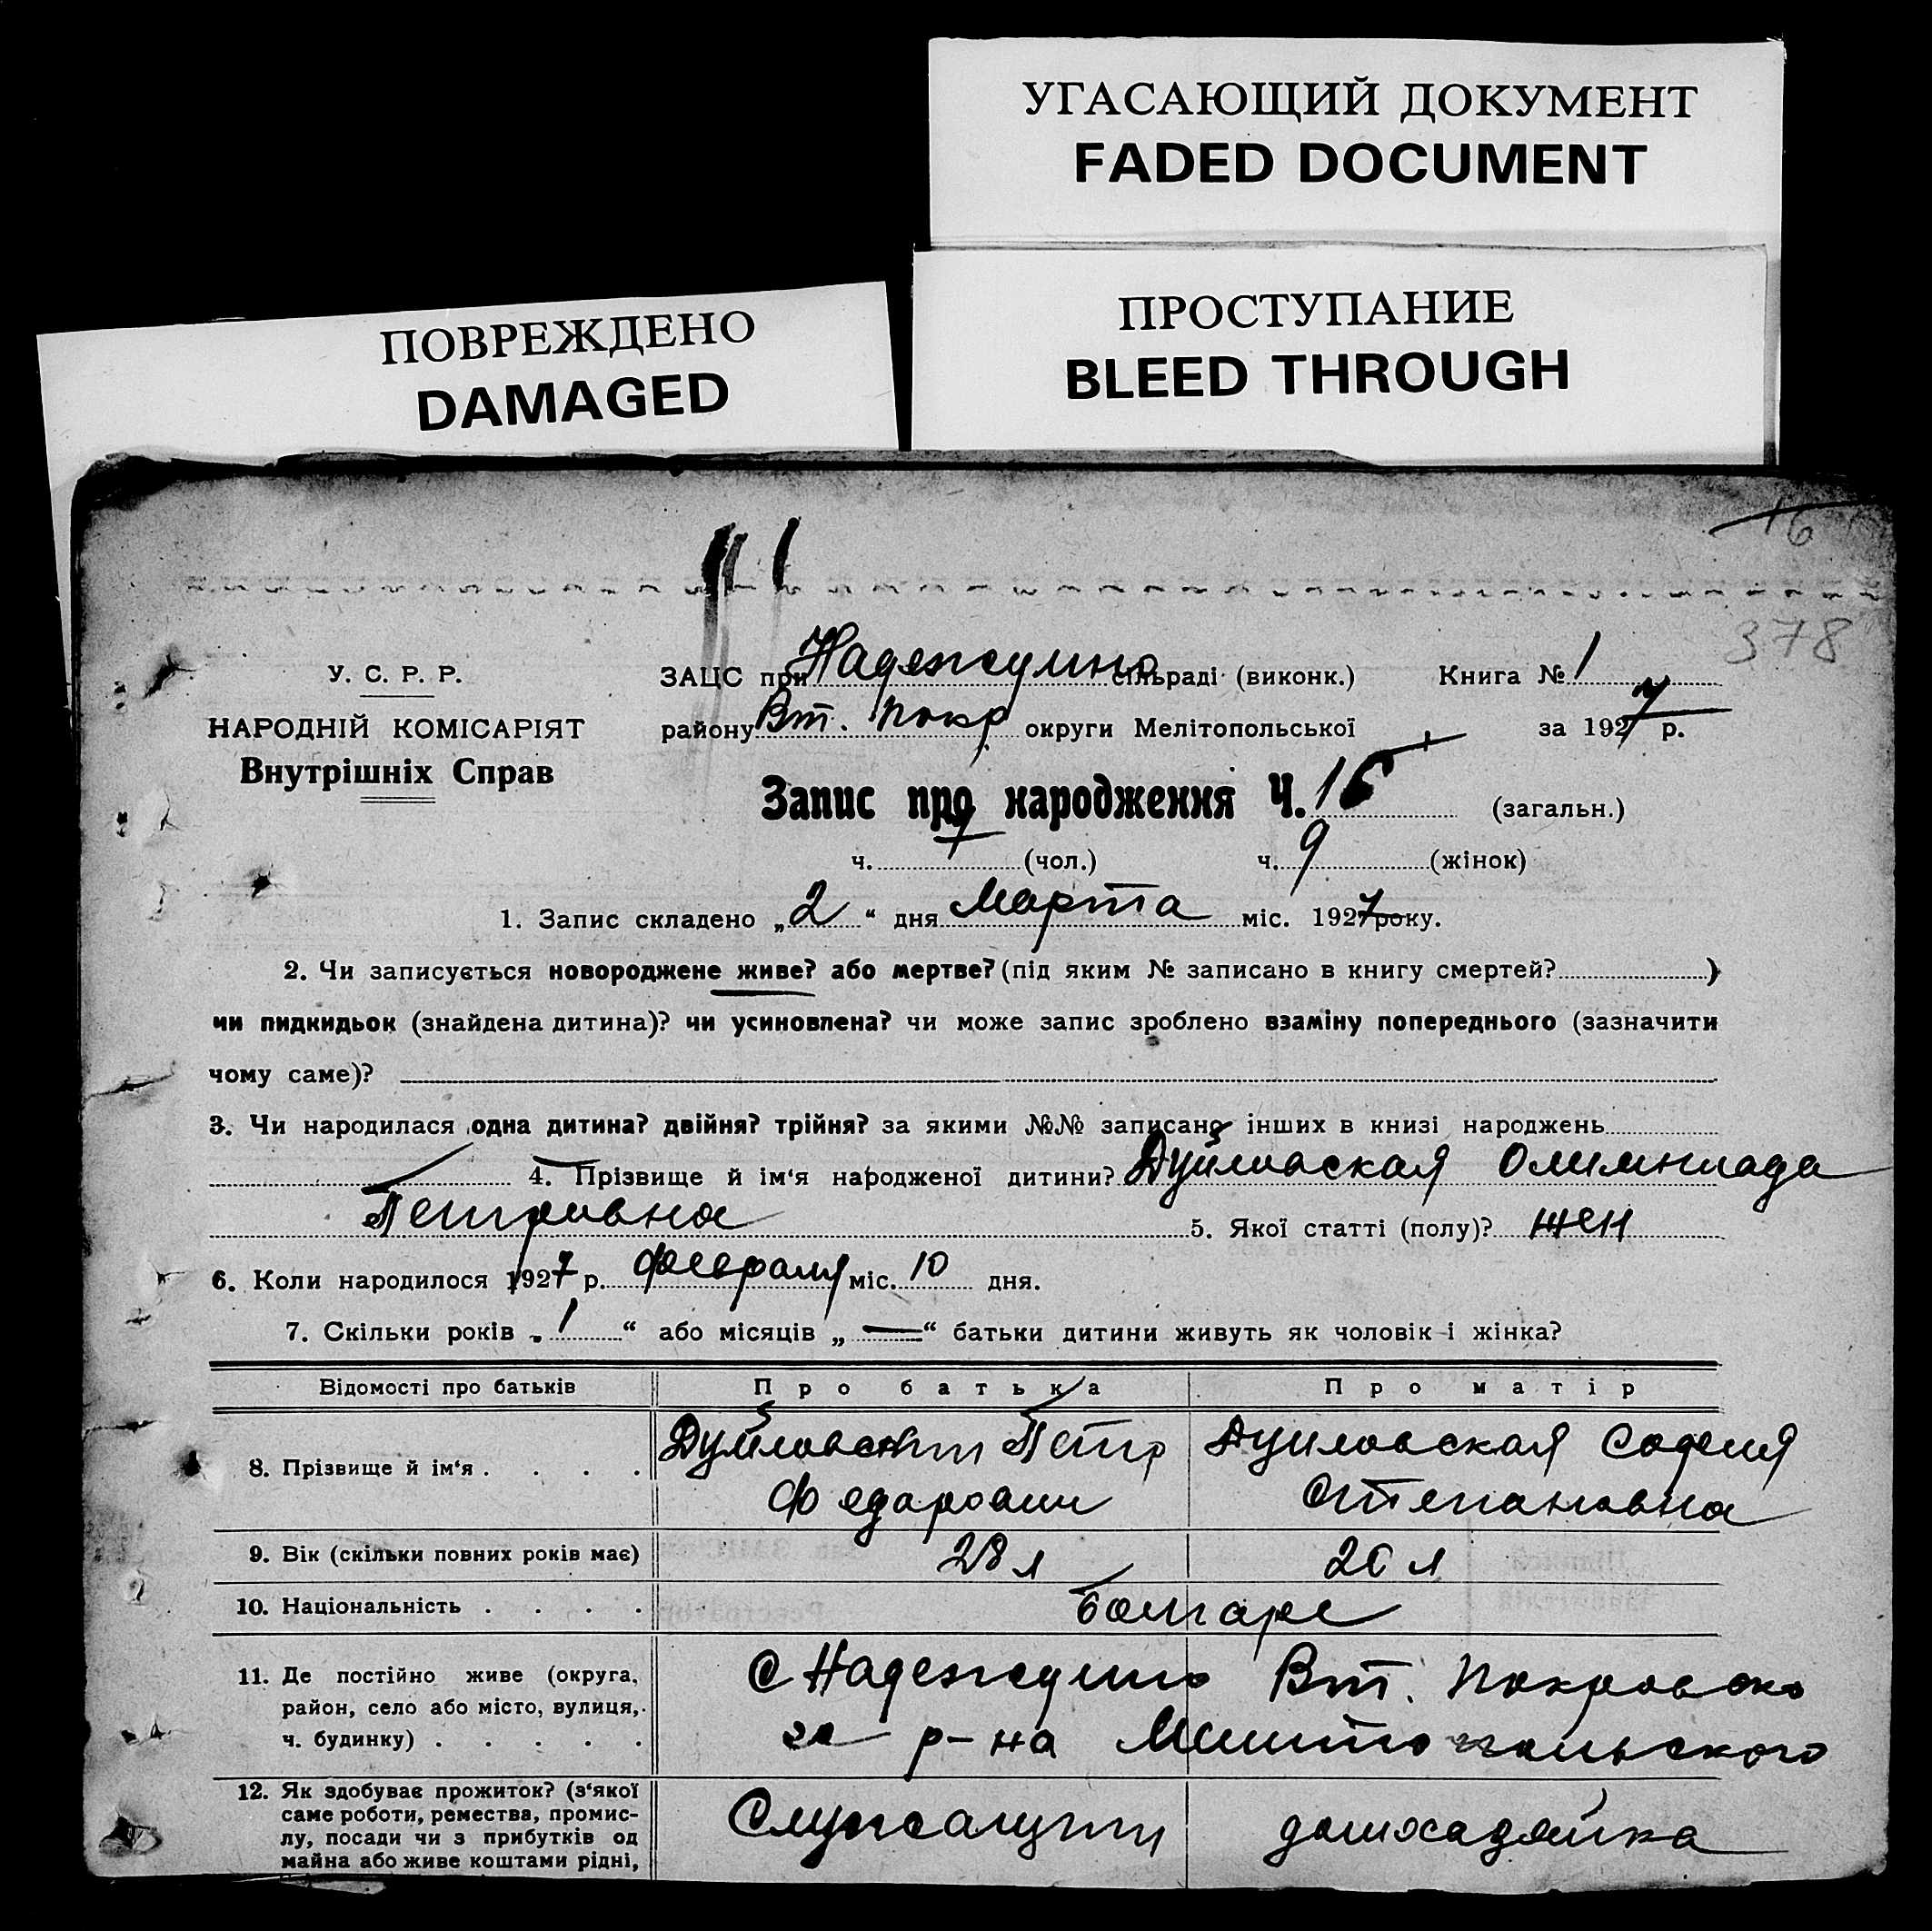 УГАСАЮЩИЙ ДОКУМЕНТ
FADED DOCUMENT
ПРОСТУПАНИЕ
BLEED THROUGH
ПОВРЕЖДЕНО
DAMAGED
16
378
У. С. Р. Р.
НАРОДНІЙ КОМІСАРІЯТ
Внутрішніх Справ
ЗАЦС при Надеждино сільраді (виконк.) Книга № 1
району Вт. Покр округи Мелітопольської за 1927 р.
Запис про народження Ч. 16 (загальн.)
ч. 7 (чол.) ч. 9 (жінок)
1. Запис складено „2“ дня Марта міс. 1927 року.
2. Чи записується новороджене живе? або мертве? (під яким № записано в книгу смертей? )
чи пидкидьок (знайдена дитина)? чи усиновлена? чи може запис зроблено взаміну попереднього (зазначити
чому саме)?
3. Чи народилася одна дитина? двійня? трійня? за якими №№ записано інших в книзі народжень
4. Прізвище й ім‘я народженої дитини? Дуйловская Олимпиада
Петровна 5. Якої статті (полу)? жен
6. Коли народилося 1927 р. февраля міс. 10 дня.
7. Скільки років „1“ або місяців „—“ батьки дитини живуть як чоловік і жінка?
Відомості про батьків Про батька Про матір
8. Прізвище й ім‘я . . . . Дуйловский Петр Дуиловская София
Федарович Степановна
9. Вік (скільки повних років має) 28 л 20 л
10. Національність . . . . болгаре
11. Де постійно живе (округа,
район, село або місто, вулиця,
ч. будинку) . . . . .
С Надеждино Вт. Покровско
го р-на Мелитопольского
12. Як здобуває прожиток? (з‘якої
саме роботи, ремества, промис-
лу, посади чи з прибутків од
майна або живе коштами рідні,
Служащий домохадяйка